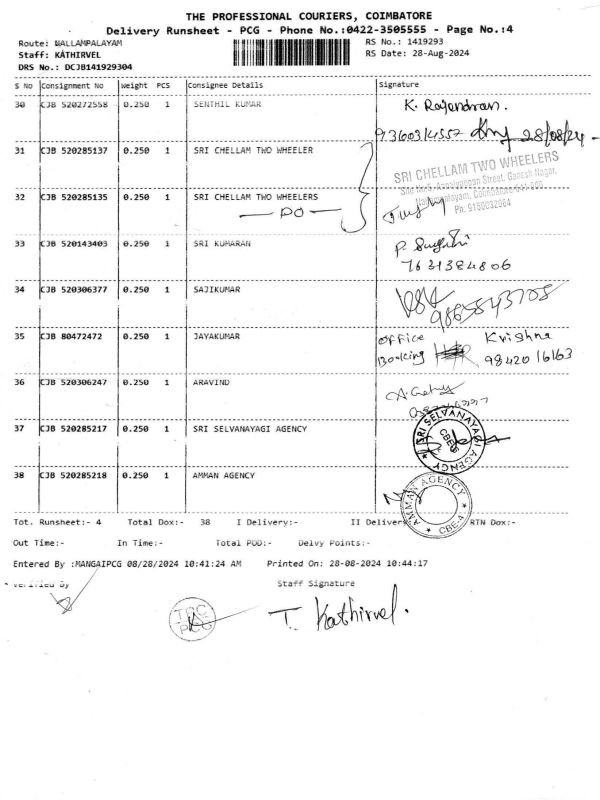 THE PROFESSIONAL COURIERS, COIMBATORE
Delivery Runsheet - PCG - Phone No.:0422-3505555 - Page No.:4
Route: NALLAMPALAYAM RS No.: 1419293
Staff: KATHIRVEL RS Date: 28-Aug-2024
DRS No.: DCJB141929304
S No Consignment No Weight PCS Consignee Details Signature
30 CJB 520272558 0.250 1 SENTHIL KUMAR K. Rajendran.
28/08/24
31 CJB 520285137 0.250 1 SRI CHELLAM TWO WHEELER
SRI CHELLAM TWO WHEELERS
Street, Ganesh Nagar,
Coimbatore
Ph: 9159032964
32 CJB 520285135 0.250 1 SRI CHELLAM TWO WHEELERS
— DO —
33 CJB 520143403 0.250 1 SRI KUMARAN P.
7631384806
34 CJB 520306377 0.250 1 SAJIKUMAR
9865843708
35 CJB 80472472 0.250 1 JAYAKUMAR office Krishna
Booking 98420 16163
36 CJB 520306247 0.250 1 ARAVIND
37 CJB 520285217 0.250 1 SRI SELVANAYAGI AGENCY
SRI SELVANAYAGI AGENCY
38 CJB 520285218 0.250 1 AMMAN AGENCY
AMMAN AGENCY
CBE-4
Tot. Runsheet:- 4 Total Dox:- 38 I Delivery:- II Deliver RTN Dox:-
Out Time:- In Time:- Total POD:- Delvy Points:-
Entered By :MANGAIPCG 08/28/2024 10:41:24 AM Printed On: 28-08-2024 10:44:17
Verified By Staff Signature
PCG
T. Kathirvel.